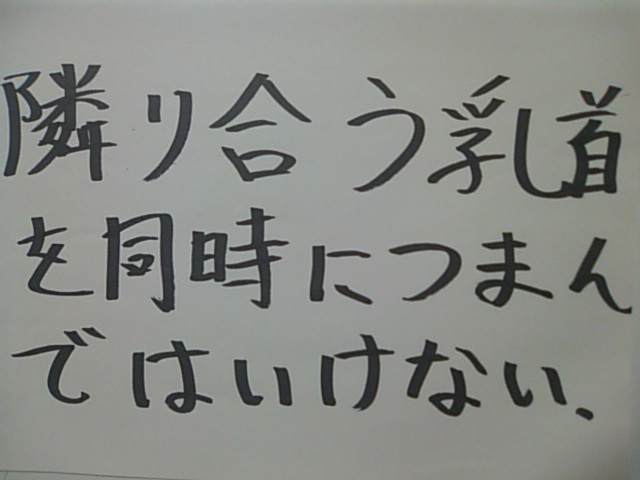 隣り合う乳首
を同時につまん
ではいけない、